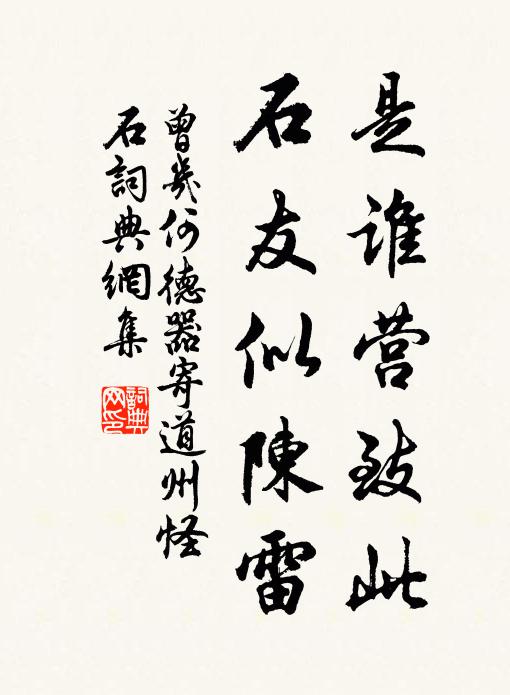 是谁营致此
石友似陳雷
曾几何德器寄道州怪
石詞典網集
詞典网印